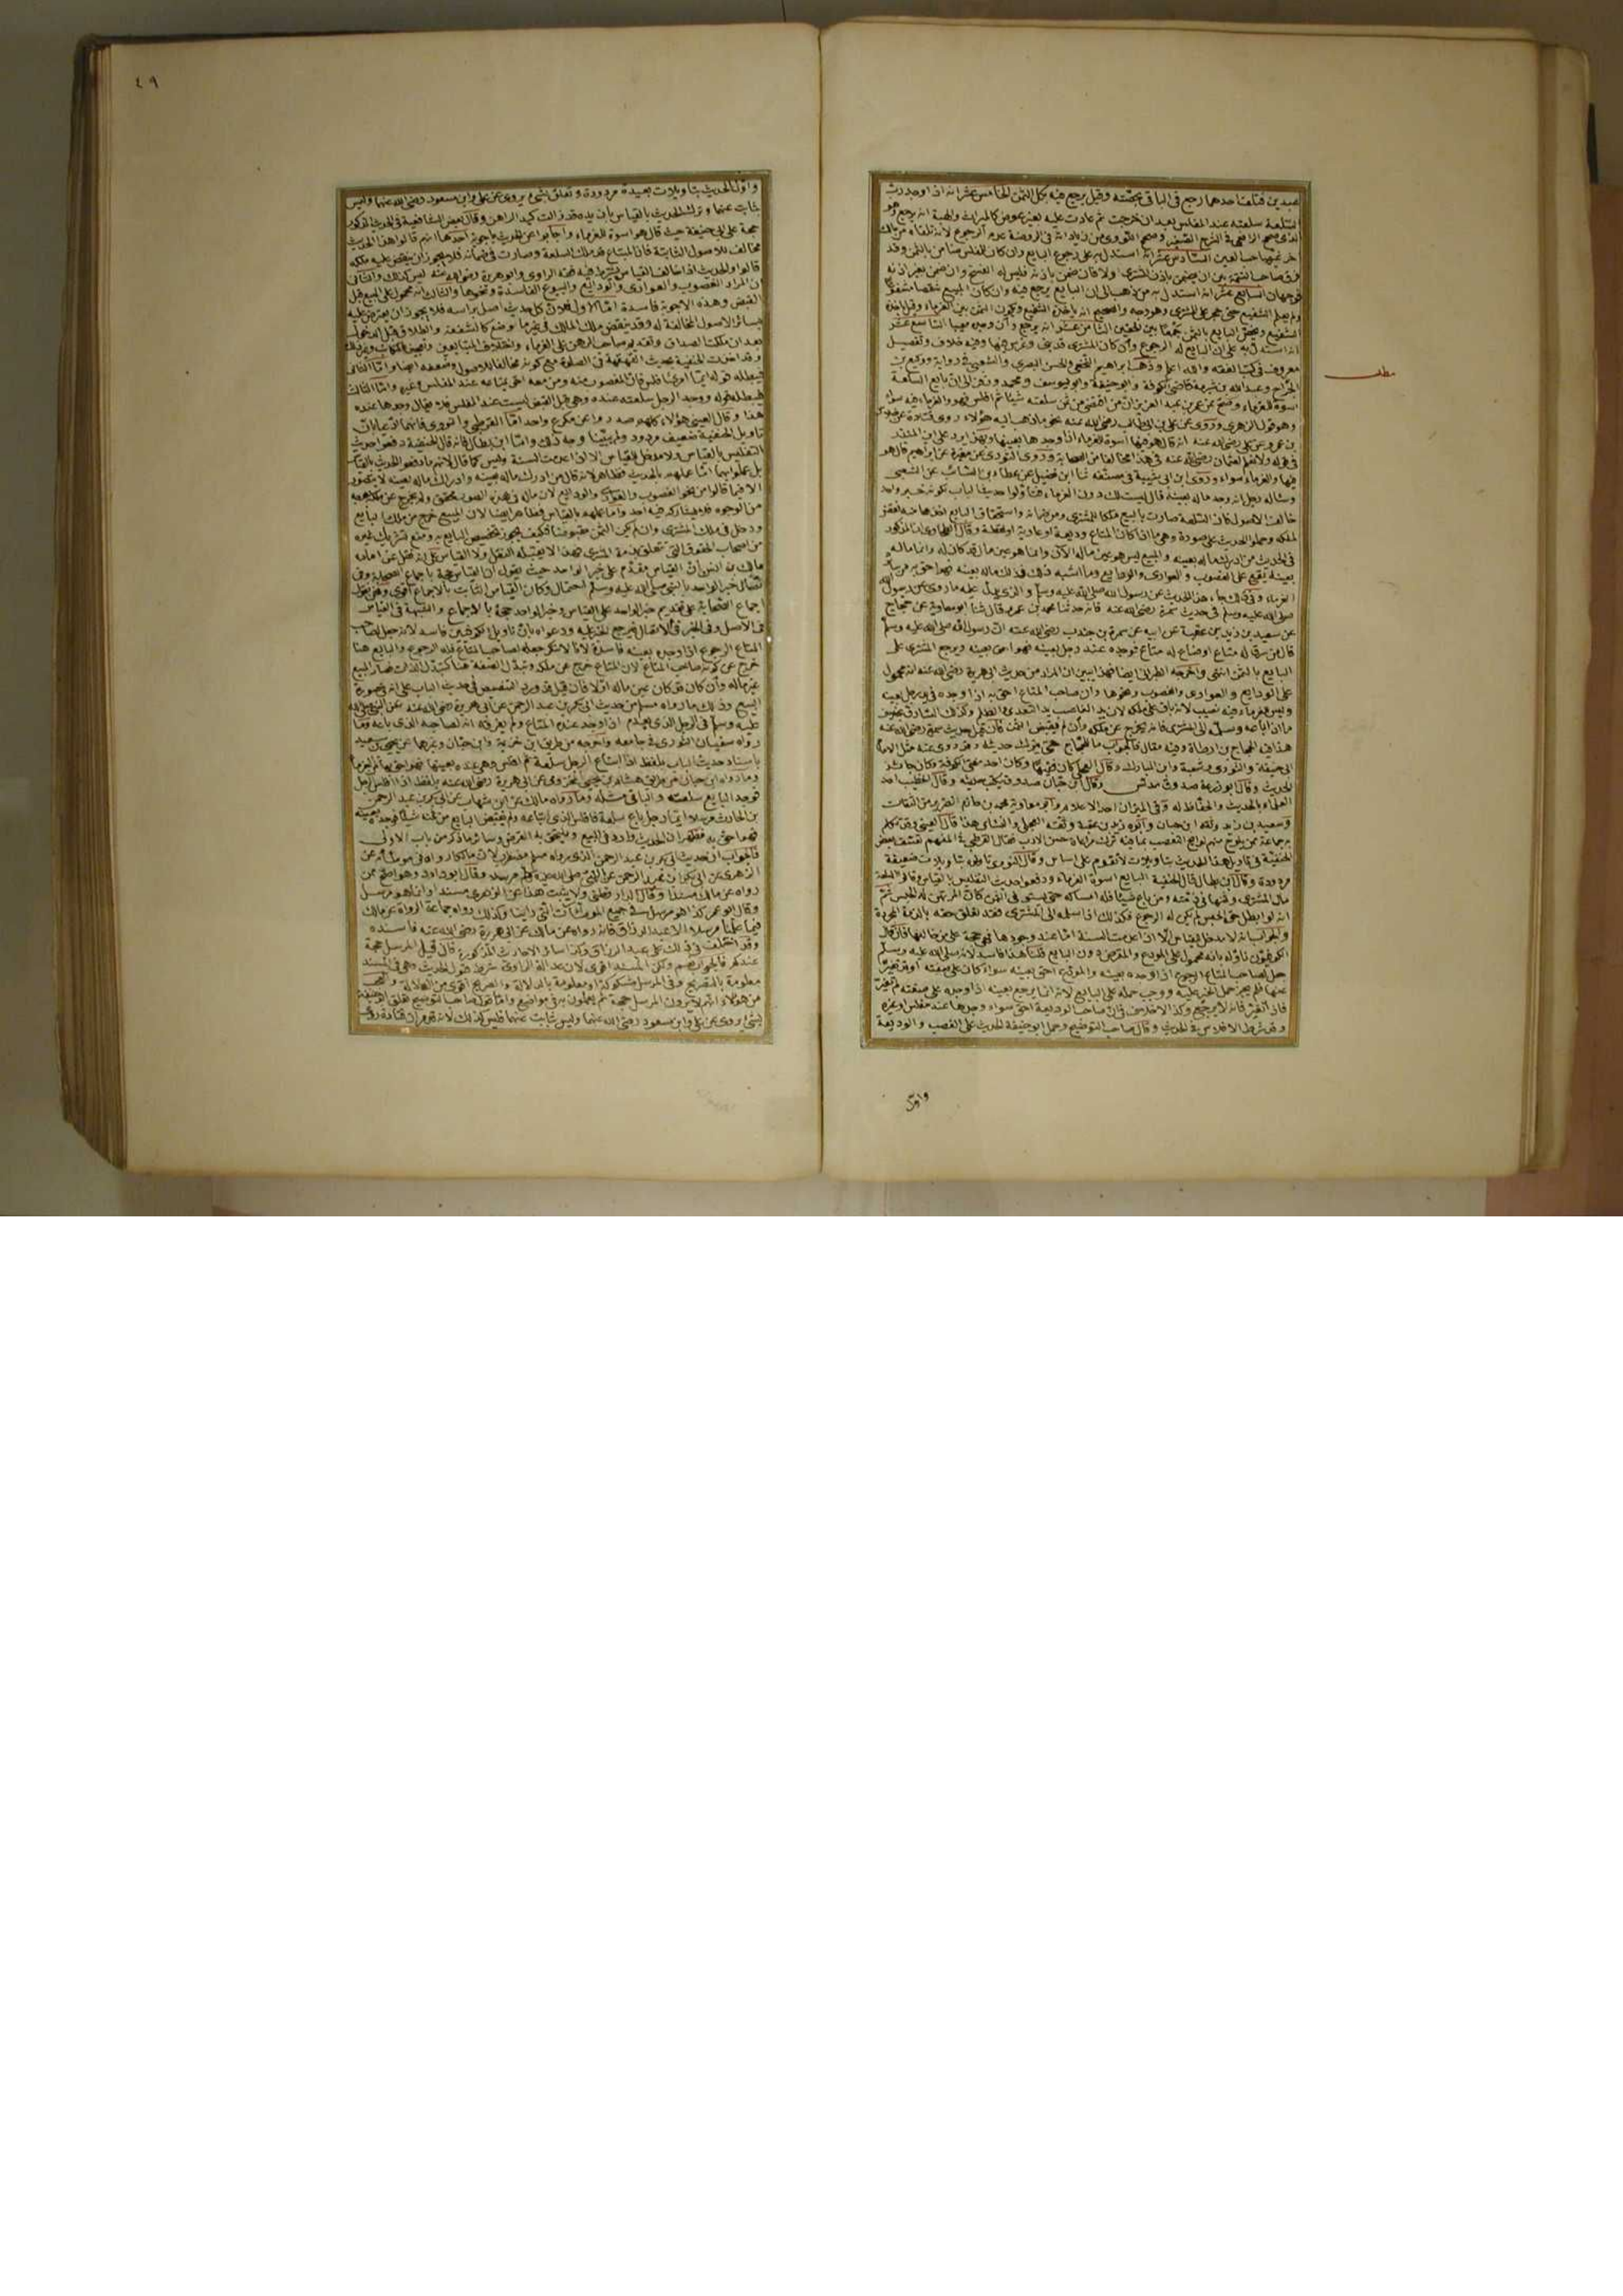 عبدين فتلف احدهما رجع في الباقي بحصته وقيل يرجع فيه بكل الثمن الخامس عشر انه اذا وجد رب
السلعة سلعته عند المفلس بعد ان خرجت ثم عادت عليه بغير عوض كالميراث والهبة انه يرجع وهو
الذي صحح الرافعي في الشرح الصغير وصحح النووي من زياداته في الروضة عدم الرجوع لانه تلقاه من مالك
اخر غيرها صاحب العين السادس عشر انه استدل به على رجوع البايع وان كان للمفلس ضامن بالثمن وقد
فرق صاحب التتمة بين ان يضمن باذن المشتري اولا فان ضمن باذنه فليس له الفسخ وان ضمن بغير اذنه
فوجهان السابع عشر انه استدل به من ذهب الى ان البايع يرجع فيه وان كان المبيع شقصا مشفوعا
ولم يعلم الشفيع حتى حجر على المشتري وهو وجه والصحيح انه ياخذه الشفيع ويكون الثمن بين الغرماء وقيل ياخذه
الشفيع ويخص البايع بالثمن جمعا بين الحقين الثامن عشر انه يرجع وان وجده معيبا التاسع عشر
انه استدل به على ان البايع له الرجوع وان كان المشتري قد بنى وغرس فيها وفيه خلاف وتفصيل
معروف في كتب الفقه والله اعلم وذهب ابراهيم النخعي والحسن البصري والشعبي في رواية ووكيع بن
الجراح وعبد الله بن شبرمة قاضي الكوفة وابو حنيفة وابو يوسف ومحمد وزفر الى ان بايع السلعة
اسوة للغرماء وصح عن عمر بن عبد العزيز ان من اقتضى من ثمن سلعته شيئا ثم افلس فهو والغرماء فيه سواء
وهو قول الزهري وروي عن علي بن ابي طالب رضي الله عنه نحو ما ذهب اليه هؤلاء روى قتادة عن خلاس
بن عمرو عن علي رضي الله عنه انه قال هو فيها اسوة الغرماء اذا وجدها بعينها وبهذا يرد على ابن المنذر
في قوله ولا نعلم لعثمان رضي الله عنه في هذا مخالفا من الصحابة وروى الثوري عن مغيرة عن ابراهيم قال هو
فيها والغرماء سواء وروى ابن ابي شيبة في مصنفه ثنا ابن فضيل عن عطاء بن السائب عن الشعبي
وساله رجل انه وجد ماله بعينه قال ليست لك دون الغرماء فتاولوا حديث الباب بكونه خبر واحد
خالف الاصول لان السلعة صارت بالبيع ملكا للمشتري ومن ضمانه واستحقاق البايع اخذها منه نقض
لملكه وحملوا الحديث على صورة وهي ما اذا كان المتاع وديعة او عارية او لقطة وقال الطحاوي ان المذكور
في الحديث من ادرك ماله بعينه والمبيع ليس هو عين ماله الان وانما هو عين مال قد كان له وانما ماله
بعينه يقع على الغصوب والعواري والودايع وما اشبه ذلك فذلك ماله بعينه فهو احق به من سائر
الغرماء وفي ذلك جاء هذا الحديث عن رسول الله صلى الله عليه وسلم والذي يدل عليه ما روي عن رسول الله
صلى الله عليه وسلم في حديث سمرة رضي الله عنه فانه حدثنا محمد بن عمرو قال ثنا ابو معاوية عن حجاج
عن سعيد بن زيد بن عقبة عن ابيه عن سمرة بن جندب رضي الله عنه ان رسول الله صلى الله عليه وسلم
قال من سرق له متاع او ضاع له متاع فوجده عند رجل بعينه فهو احق بعينه ويرجع المشتري على
البايع بالثمن انتهى واخرجه الطبراني ايضا فهذا يبين ان المراد من حديث ابي هريرة رضي الله عنه انه محمول
على الودايع والعواري والغصوب ونحوها وان صاحب المتاع احق به اذا وجده في يد رجل بعينه
وليس للغرماء فيه نصيب لانه باق على ملكه لان يد الغاصب يد التعدي والظلم وكذلك السارق بخلاف
ما اذا باعه وسلمه الى المشتري فانه يخرج عن ملكه وان لم يقبض الثمن فان قيل حديث سمرة رضي الله عنه
هذا فيه الحجاج بن ارطاة وفيه مقال فالجواب ما للحجاج حتى يترك حديثه وقد روى عنه مثل الامام
ابي حنيفة والثوري وشعبة وابن المبارك وقال العجلي كان فقيها وكان احد مفتي الكوفة وكان جائز
الحديث وقال ابو زرعة صدوق مدلس وقال ابن حبان صدوق يكتب حديثه وقال الخطيب احد
العلماء بالحديث والحفاظ له وفي الميزان احد الاعلام وابو معاوية محمد بن خازم الضرير من الثقات
وسعيد بن زيد وثقه ابن حبان وابوه زيد بن عقبة وثقه العجلي والنسائي هذا قال العيني وقد تكلم
جماعة ممن يلوح منهم لوايح التعصب بما فيه ترك مراعاة حسن الادب فقال القرطبي في المفهم تعسف بعض
الحنفية في تاويل هذا الحديث بتاويلات لا تقوم على اساس وقال النووي تاولوه بتاويلات ضعيفة
مردودة وقال ابن بطال قال الحنفية البايع اسوة الغرماء ودفعوا حديث التفليس بالقياس وقالوا السلعة
مال المشتري وثمنها في ذمته ومن باع شيئا فله امساكه حتى يستوفي الثمن كان المرتهن له الحبس ثم
انه لو ابطل حق الحبس لم يكن له الرجوع فكذلك اذا سلمه الى المشتري فقد تعلق حقه بالذمة المجردة
والجواب انه لا مدخل للقياس الا اذا عدمت السنة اما عند وجودها فهي حجة على من خالفها فان قال
الكوفيون ناوله بانه محمول على المودع والمقرض دون البايع قلنا هذا فاسد لانه صلى الله عليه وسلم
جعل لصاحب المتاع الرجوع اذا وجده بعينه والمودع احق بعينه سواء كان على صفته او قد تغير
عنها فلم يجز حمل الخبر عليه ووجب حمله على البايع لانه انما يرجع بعينه اذا وجده على صفته لم يتغير
فاذا تغير فانه لا يرجع وكذا الافلاس فان صاحب الوديعة احق سواء وجدها عند مفلس او غيره
وقد شرط الافلاس في الحديث وقال صاحب التوضيح وحمل ابو حنيفة الحديث على الغصب والوديعة
مطلب
واول
٤٩
واول الحديث بتاويلات بعيدة مردودة وتعلق بشيء يروى عن علي وابن مسعود رضي الله عنهما وليس
بثابت عنهما وترك الحديث بالقياس بان يده قد زالت كيد الراهن وقال بعض الشافعية في الحديث المذكور
حجة على ابي حنيفة حيث قال هو اسوة للغرماء واجابوا عن الحديث باجوبة احدها انهم قالوا هذا الحديث
مخالف للاصول الثابتة فان المبتاع قد ملك السلعة وصارت في ضمانه فلا يجوز ان ينقض عليه ملكه
قالوا والحديث اذا خالف القياس يشترط فيه فقه الراوي وابو هريرة رضي الله عنه ليس كذلك والثاني
ان المراد الغصوب والعواري والودائع والبيوع الفاسدة ونحوها والثالث انه محمول على المبيع قبل
القبض وهذه الاجوبة فاسدة اما الاول فلان كل حديث اصل براسه فلا يجوز ان يعترض عليه
بسائر الاصول المخالفة له وقد ينقض ملك المالك في غير ما موضع كالشفعة والطلاق قبل الدخول
بعد ان ملكت الصداق وتقديم صاحب الرهن على الغرماء واختلاف المتبايعين وتعجيز المكاتب وغير ذلك
وقد اخذت الحنفية بحديث القهقهة في الصلوة مع كونه مخالفا للاصول وضعفه ايضا واما الثاني
فيبطله قوله ايما امرئ افلس فان المغصوب منه ومن معه احق بمتاعه عند المفلس وغيره واما الثالث
فيبطله قوله ووجد الرجل سلعته عنده وهي قبل القبض ليست عند المفلس فلا يقال وجدها عنده
هذا وقال العيني هؤلاء كلهم صدروا عن مكرع واحد اما القرطبي والنووي فانهما ادعيا بان
تاويل الحنفية ضعيف مردود ولم يبينا وجه ذلك واما ابن بطال فانه قال الحنفية دفعوا حديث
التفليس بالقياس ولا مدخل للقياس الا اذا عدمت السنة وليس كما قال لانهم ما دفعوا الحديث بالقياس
بل عملوا بهما اما عملهم بالحديث فظاهر لانه قال من ادرك ماله بعينه وادراك ماله بعينه لا يتصور
الا فيما قالوا من نحو الغصوب والعواري والودايع لان ماله في هذه الصور محقق ولم يخرج عن ملكه بوجه
من الوجوه فلا يشاركه فيه احد واما عملهم بالقياس فظاهر ايضا لان المبيع خرج من ملك البايع
ودخل في ملك المشتري وان لم يكن الثمن مقبوضا فكيف يجوز تخصيص البايع به ومنع تشريك غيره
من اصحاب الحقوق التي تتعلق بذمة المشتري فهذا لا يقبله النقل ولا القياس على انه نقل عن امام
مالك بن انس ان القياس مقدم على خبر الواحد حيث يقول ان القياس حجة باجماع الصحابة وفي
اتصال خبر الواحد بالنبي صلى الله عليه وسلم احتمال فكان القياس الثابت بالاجماع اقوى ونحن نقول
اجماع الصحابة على تقديم خبر الواحد على القياس وخبر الواحد حجة بالاجماع والشبهة في القياس
في الاصل وفي الخبر في الاتصال فيرجح الخبر عليه ودعواه بان تاويل الكوفيين فاسد لانه جعل لصاحب
المتاع الرجوع اذا وجده بعينه فاسدة لانا لا ننكر جعله لصاحب المتاع فله الرجوع والبايع هنا
خرج عن كونه صاحب المتاع لان المتاع خرج عن ملكه وتبدل الصفة هنا كتبدل الذات فصار المبيع
غير ماله وان كان قد كان عين ماله اولا فان قيل قد ورد التنصيص في حديث الباب على انه في صورة
البيع وذلك ما رواه مسلم من حديث ابي بكر بن عبد الرحمن عن ابي هريرة رضي الله عنه عن النبي صلى الله
عليه وسلم في الرجل الذي يعدم اذا وجد عنده المتاع ولم يفرقه انه لصاحبه الذي باعه وما
رواه سفيان الثوري في جامعه واخرجه من طريقه ابن خزيمة وابن حبان وغيرهما عن يحيى بن سعيد
باسناد حديث الباب بلفظ اذا ابتاع الرجل سلعة ثم افلس وهي عنده بعينها فهو احق بها من الغرماء
وما رواه ابن حبان من طريق هشام بن يحيى المخزومي عن ابي هريرة رضي الله عنه بلفظ اذا افلس الرجل
فوجد البايع سلعته والباقي مثله وما رواه مالك عن ابن شهاب عن ابي بكر بن عبد الرحمن
بن الحارث مرسلا ايما رجل باع سلعة فافلس الذي ابتاعه ولم يقبض البايع من ثمنه شيئا فوجده بعينه
فهو احق به فظهر ان الحديث وارد في البيع ويلتحق به القرض وسائر ما ذكر من باب الاولى
فالجواب ان حديث ابي بكر بن عبد الرحمن الذي رواه مسلم مضطرب لان مالكا رواه في موطائه عن
الزهري عن ابي بكر بن عبد الرحمن عن النبي صلى الله عليه وسلم مرسلا وقال ابو داود وهو اصح ممن
رواه عن مالك مسندا وقال الدارقطني ولا يثبت هذا عن الزهري مسندا وانما هو مرسل
وقال ابو عمر كذا هو مرسل في جميع الموطئات التي راينا وكذلك رواه جماعة الرواة عن مالك
فيما علمنا مرسلا الا عبد الرزاق فانه رواه عن مالك عن ابي هريرة رضي الله عنه فاسنده
وقد اختلف في ذلك على عبد الرزاق وكذا سائر الاحاديث المذكورة قال قيل المرسل حجة
عندكم فالجواب نعم ولكن المسند اقوى لان عدالة الراوي شرط قبول الحديث وهي في المسند
معلومة بالتصريح وفي المرسل مشكوكة او معلومة بالدلالة والصريح اقوى من الدلالة والعجب
من هؤلاء انهم لا يرون المرسل حجة ثم يعملون به في مواضع واما قول صاحب التوضيح تعلق ابو حنيفة
بشيء يروى عن علي وابن مسعود رضي الله عنهما وليس بثابت عنهما فليس كذلك لانه قد مر ان قتادة روى